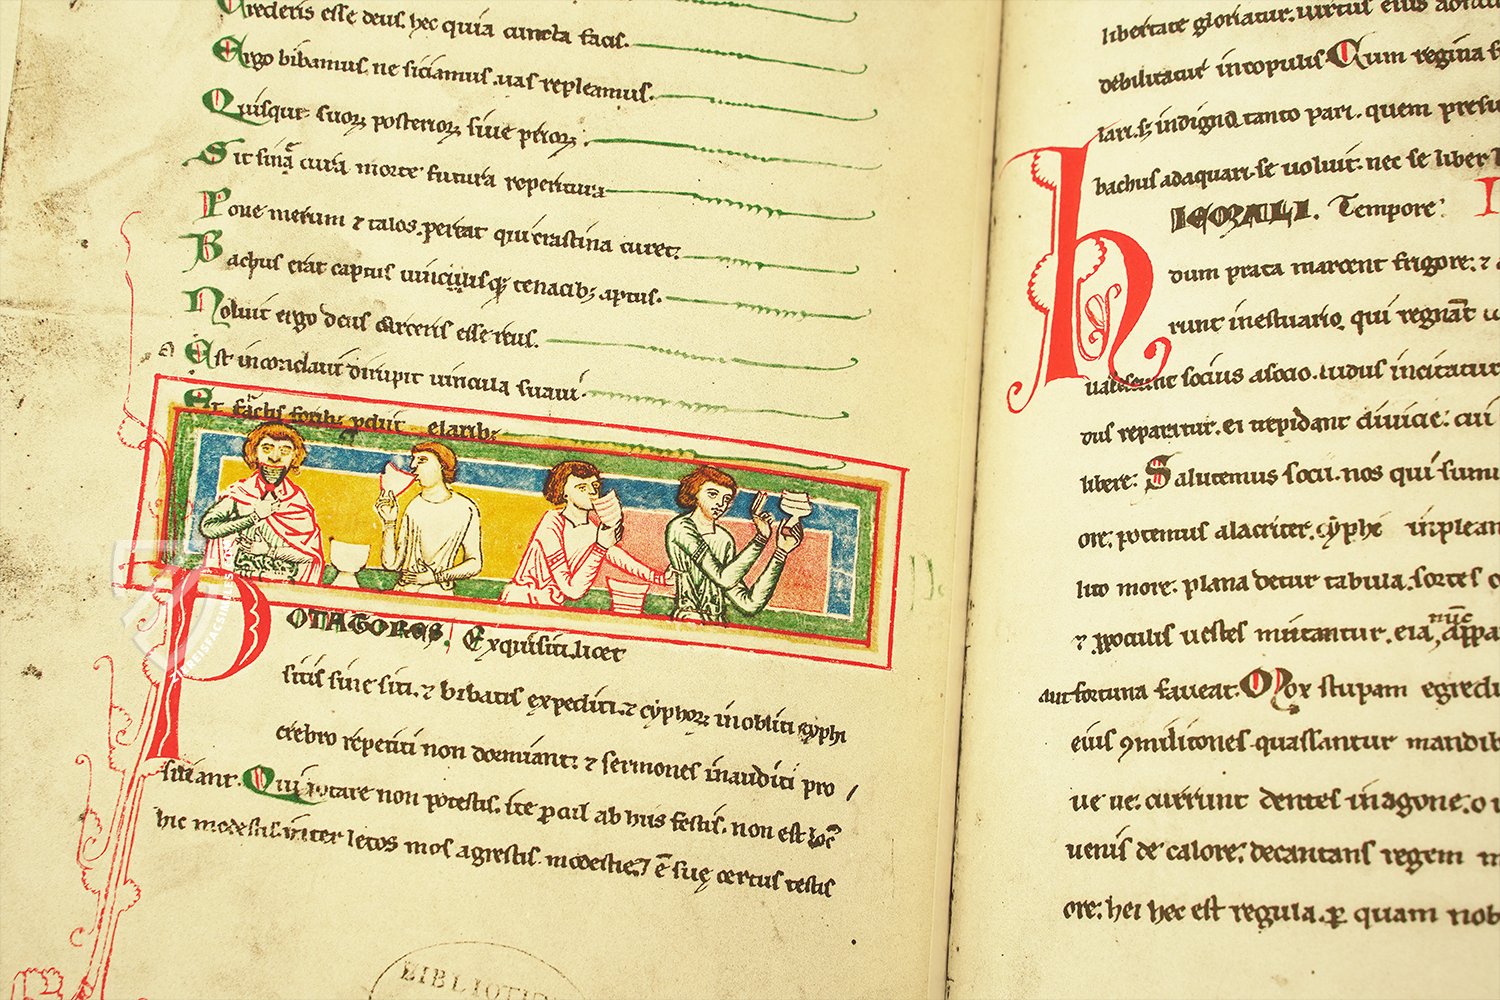 Crederis esse deus, hec quia cuncta facis.
Ergo bibamus, ne siciamus. uas repleamus.
Quisquis suorꝝ posteriorꝝ siue priorꝝ.
Sit sina cura morte futura reperitura
Pone merum ⁊ talos. pereat qui crastina curet.
Bachus erat captus uinclisqꝫ tenacibꝫ aptus.
Noluit ergo deus carceris esse reus.
Ast in conclaui dirupit uincula suaui.
Et fractis foribꝫ pdiit elaribꝫ
POTATORES. Exquisiti. licet
sitis sine siti. ⁊ bibatis expediti. ⁊ cyphorꝝ inobliti cyphi
crebro repetiti non dormiant: ⁊ sermones inauditi pro
siliant. Qui potare non potestis. ite ꝓcul ab hiis festis. non est loc
hic modestis. inter letos mos agrestis modestie. ⁊ ē sue certus testis
BIBLIOTHE
libertate gloriatur. uirtus eius
debilitatur in copulis Cum regina
lari. indigna tanto pari. quem
bachus adaquari. se uoluit. nec se liber
HIEMALI. Tempore
dum prata marcent frigore: ⁊
runt inestuario. qui regnant
socius asocio. ludus incitatur
dus reparatur. ei trepidant diuicie: cui
libere: Salutemus socii. nos qui
ore. potemus alacriter. cyphi inplean
lito more. plana detur tabula. sortes
⁊ ꝓ poculis uestes mutantur. eia, nūc
aut fortuna faueat. Mox stupam egredi
eius ꝯmilitones. quassantur mandib
ue ue. currunt dentes in agone. o
uenis de calore: decantans regem
ore: hei hec est regula. ꝑ quam nob